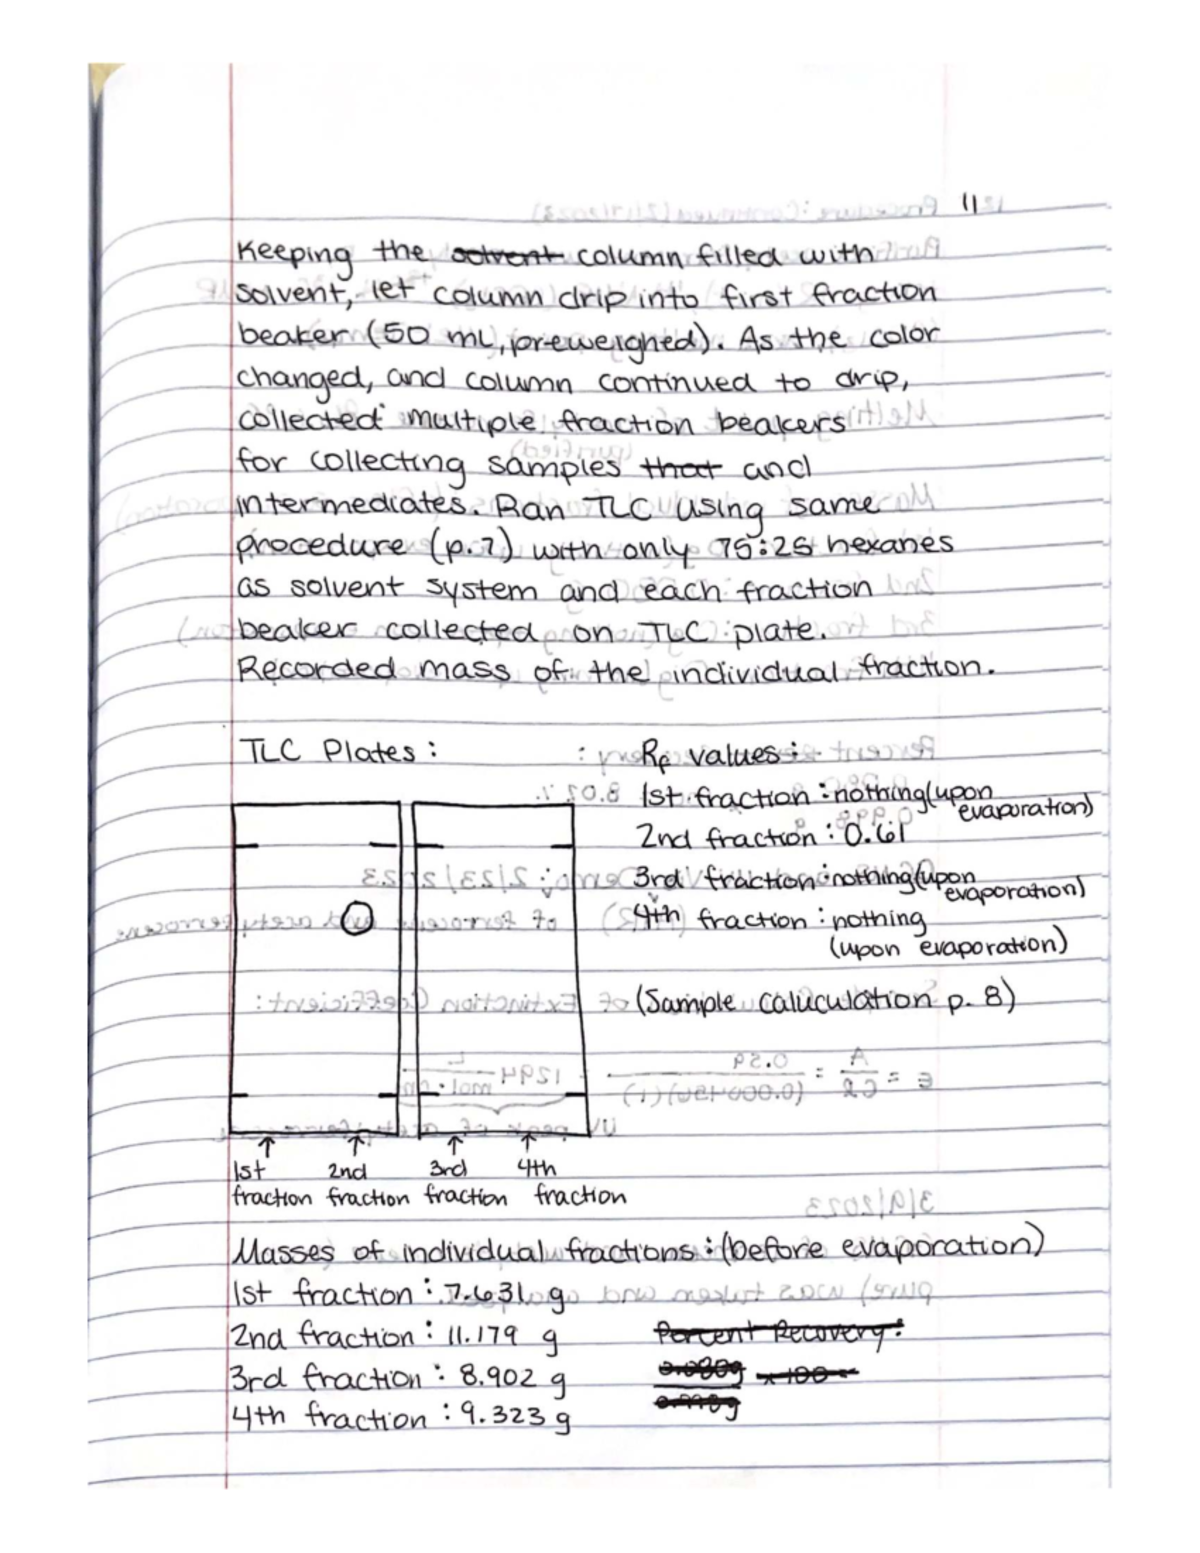 11
Keeping the solvent column filled with
solvent, let column drip into first fraction
beaker (50 mL, preweighed). As the color
changed, and column continued to drip,
collected multiple fraction beakers
for collecting samples that and
intermediates. Ran TLC using same
procedure (p.7) with only 75:25 hexanes
as solvent system and each fraction
beaker collected on TLC plate.
Recorded mass of the individual fraction.
TLC Plates:
Rf values:
1st fraction: nothing (upon evaporation)
2nd fraction: 0.61
3rd fraction: nothing (upon evaporation)
4th fraction: nothing
(upon evaporation)
(Sample caluculation p. 8)
1st fraction
2nd fraction
3rd fraction
4th fraction
Masses of individual fractions: (before evaporation)
1st fraction: 7.631 g
2nd fraction: 11.179 g
3rd fraction: 8.902 g
4th fraction: 9.323 g
Percent Recovery:
x 100